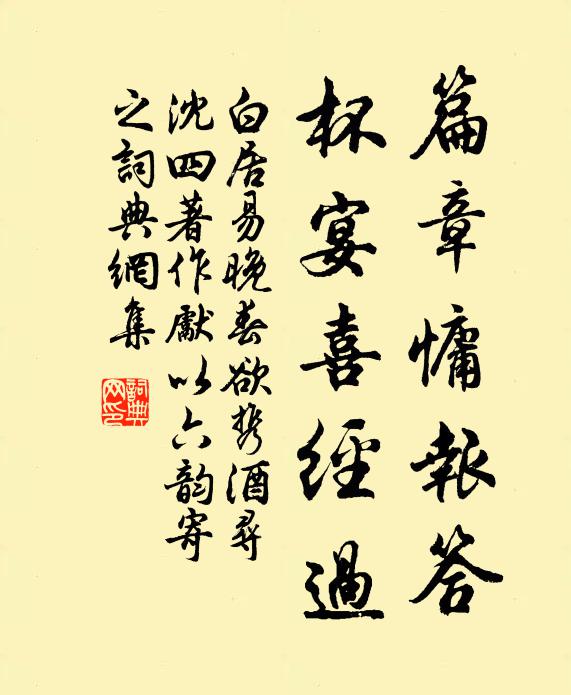 篇章慵報答
杯宴喜經過
白居易晚春欲携酒尋
沈四著作獻以六韵寄
之詞典網集
詞典
网印